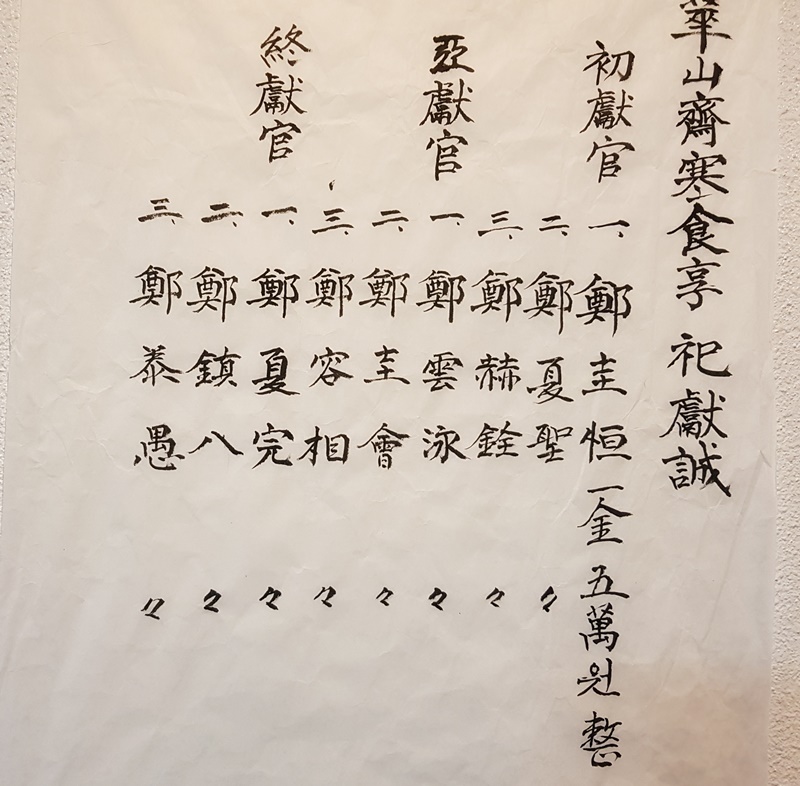 華山齋寒食享祀獻誠
初獻官
一、鄭圭恒 一金五萬원整
二、鄭夏聖 々
三、鄭赫銓 々
亞獻官
一、鄭雲泳 々
二、鄭圭會 々
三、鄭容相 々
終獻官
一、鄭夏完 々
二、鄭鎮八 々
三、鄭泰愚 々